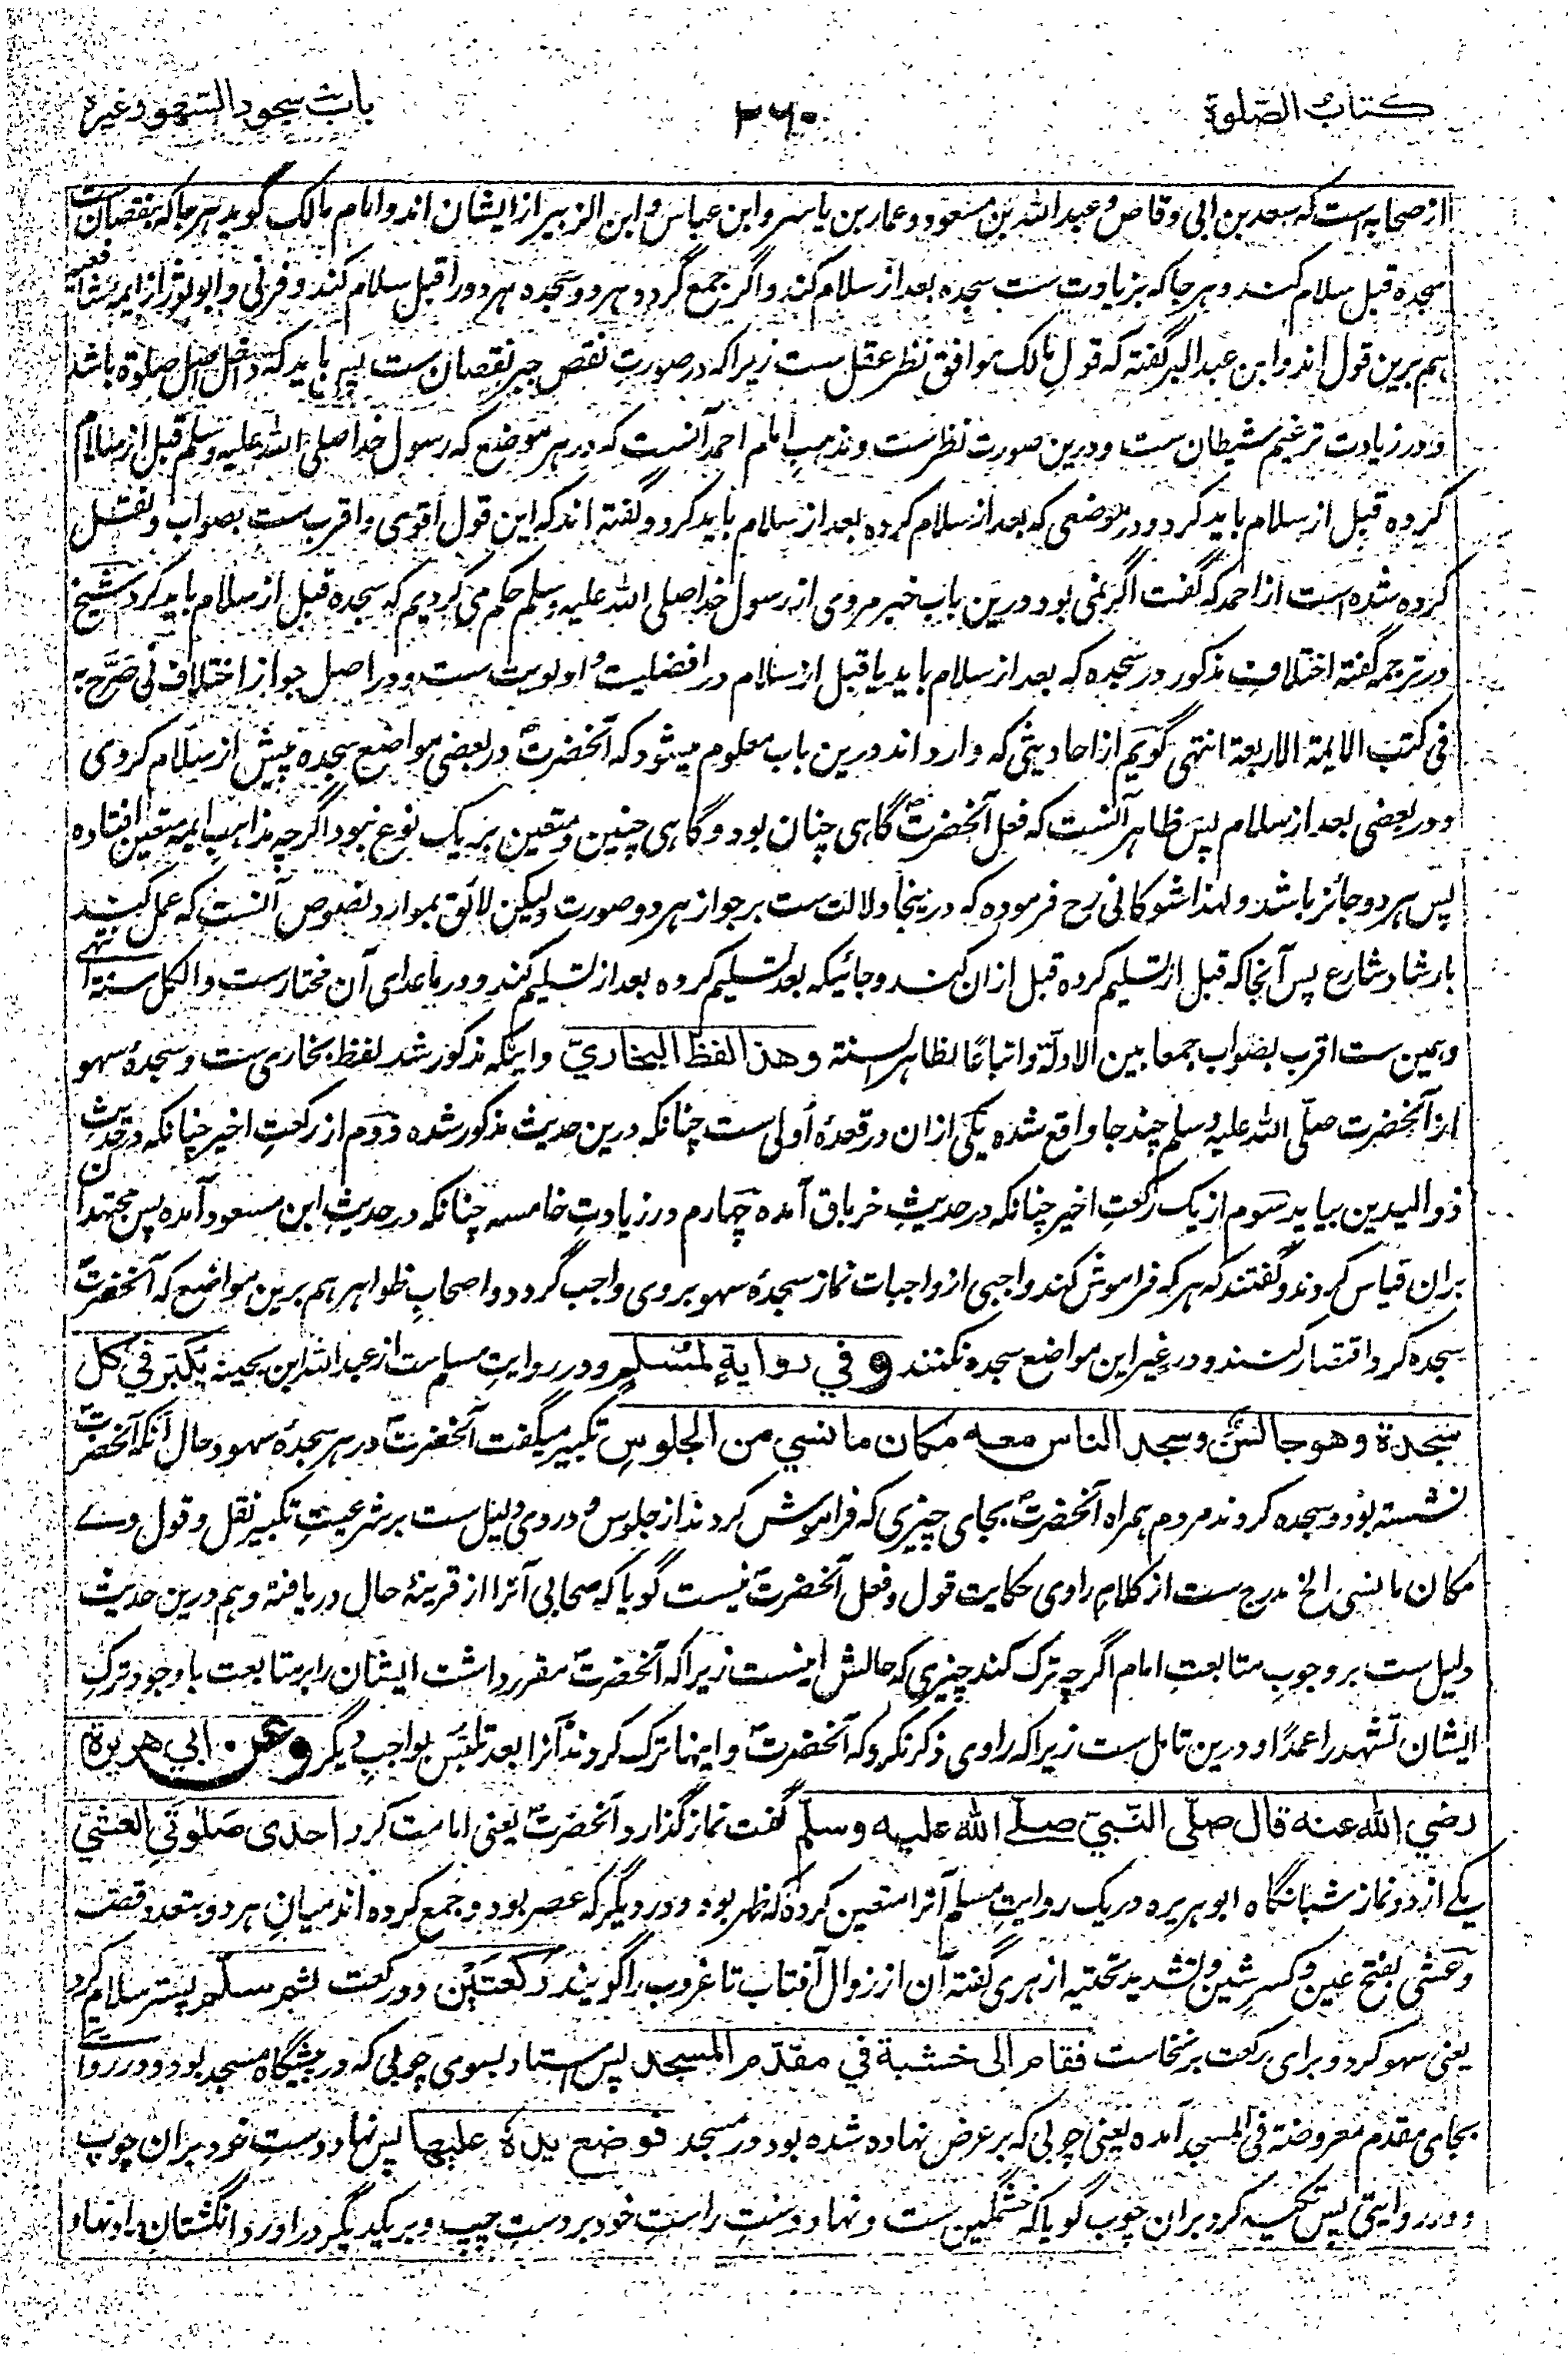 کتاب الصّلوة
۲۶۰
باب سجود السّهو وغیره
از صحابه است که سعد بن ابی وقاص و عبد الله بن مسعود و عمار بن یاسر و ابن عباس و ابن الزبیر از ایشان اند و امام مالک گوید هر جا که بنقصان ست
سجده قبل سلام کند و هر جا که بزیادت ست سجده بعد از سلام کند و اگر جمع گردد هر دو سجده هر دو را قبل سلام کند و مزنی و ابو ثور از ایمه شافعیه
هم برین قول اند و ابن عبد البر گفته که قول مالک موافق نظر عقل ست زیرا که در صورت نقص جبر نقصان ست پس باید که داخل اصل صلوة باشد
و در زیادت ترغیم شیطان ست و درین صورت نظرست و مذهب امام احمد آنست که در هر موضع که رسول خدا صلی الله علیه وسلم قبل از سلام
کرده قبل از سلام باید کرد و در موضعی که بعد از سلام کرده بعد از سلام باید کرد و گفته اند که این قول اقوی و اقرب ست بصواب و نقل
کرده شده است از احمد که گفت اگر نمی بود درین باب خبر مروی از رسول خدا صلی الله علیه وسلم حکم می کردیم که سجده قبل از سلام باید کرد شیخ
در ترجمه گفته اختلاف مذکور در سجده که بعد از سلام باید یا قبل از سلام در افضلیت و اولویت ست و در اصل جواز اختلاف نی صَرَّحَ به
فی کتب الایمة الاربعة انتهی گویم از احادیثی که وارد اند درین باب معلوم میشود که آنحضرتؐ در بعضی مواضع سجده پیش از سلام کردی
و در بعضی بعد از سلام پس ظاهر آنست که فعل آنحضرتؐ گاهی چنان بود و گاهی چنین و متعین بر یک نوع نبود اگرچه مذاهب ایمه متعین افتاده
پس هر دو جائز باشد و لهذا شوکانی رح فرموده که درینجا دلالت ست بر جواز هر دو صورت و لیکن لائق بموارد نصوص آنست که عمل کنند
بارشاد شارع پس آنجا که قبل از تسلیم کرده قبل ازان کنند و جائیکه بعد تسلیم کرده بعد از تسلیم کند و در ماعدای آن مختارست و الکل سنة انتهی
و همین ست اقرب بصواب جمعا بین الادلة و اتباعًا لظاهر السنة وهذا لفظ البخاريّ و اینکه مذکور شد لفظ بخاری ست و سجدهٔ سهو
از آنحضرت صلّی الله علیه وسلم چند جا واقع شده یکی ازان در قعدهٔ اُولی ست چنانکه درین حدیث مذکور شده دوم از رکعتِ اخیر چنانکه در حدیثِ
ذو الیدین بیاید سوم از یک رکعتِ اخیر چنانکه در حدیثِ خرباق آمده چهارم در زیادتِ خامسه چنانکه در حدیثِ ابن مسعود آمده پس مجتهدان
بران قیاس کردند و گفتند که هر که فراموش کند واجبی از واجبات نماز سجدهٔ سهو بروی واجب گردد و اصحابِ ظواهر هم برین مواضع که آنحضرتؐ
سجده کرد اقتصار کنند و در غیر این مواضع سجده نکنند و في رواية لمسلم و در روایتِ مسلم ست از عبد الله ابن بحینه يكبّر في كل
سجدة وهو جالسٌ وسجد الناس معه مكان ما نسي من الجلوسِ تکبیر میگفت آنحضرتؐ در هر سجدهٔ سهو و حال آنکه آنحضرتؐ
نشسته بود و سجده کردند مردم همراه آنحضرتؐ بجای چیزی که فراموش کردند از جلوس و دروی دلیل ست بر شرعیتِ تکبیر نقل و قول وے
مکان ما نسی الخ مدرج ست از کلامِ راوی حکایت قول و فعل آنحضرتؐ نیست گویا که صحابی آنرا از قرینهٔ حال دریافته و هم درین حدیث
دلیل ست بر وجوبِ متابعتِ امام اگرچه ترک کند چیزی که حالش اینست زیرا که آنحضرتؐ مقرر داشت ایشان را بر متابعت با وجود ترکِ
ایشان تشهد را عمدًا و درین تامل ست زیرا که راوی ذکر نکرد که آنحضرتؐ و اینها ترک کردند آنرا بعد تلبّس بواجبِ دیگر وعن ابي هريرة
رضي الله عنه قال صلّى النّبيّ صلّى الله عليه وسلّم گفت نماز گذارد آنحضرتؐ یعنی امامت کرد احدى صلٰوتَي العشيّ
یکے از دو نماز شبانگاه ابو هریره در یک روایتِ مسلم آنرا متعین کرده که ظهر بود و در دیگر که عصر بود و جمع کرده اند میانِ هر دو بتعدد قصت
و عَشی بفتح عین و کسر شین و تشدید تحتیه ازهری گفته آن از زوال آفتاب تا غروب را گویند ركعتَيْن دو رکعت ثم سلّم پستر سلام کرد
یعنی سهو کرد و برای رکعت برنخاست فقام الى خشبة في مقدّم المسجد پس استاد بسوی چوبی که در پیشگاه مسجد بود و در روایتے
بجای مقدم معروضة فی المسجد آمده یعنی چوبی که بر عرض نهاده شده بود در مسجد فوضع يدهٗ عليها پس نهاد دستِ خود بران چوب
و در روایتی پس تکیه کرد بران چوب گویا که خشمگین ست و نهاد دستِ راستِ خود بر دستِ چپ و بر یکدیگر در آورد انگشتان را و نهاد